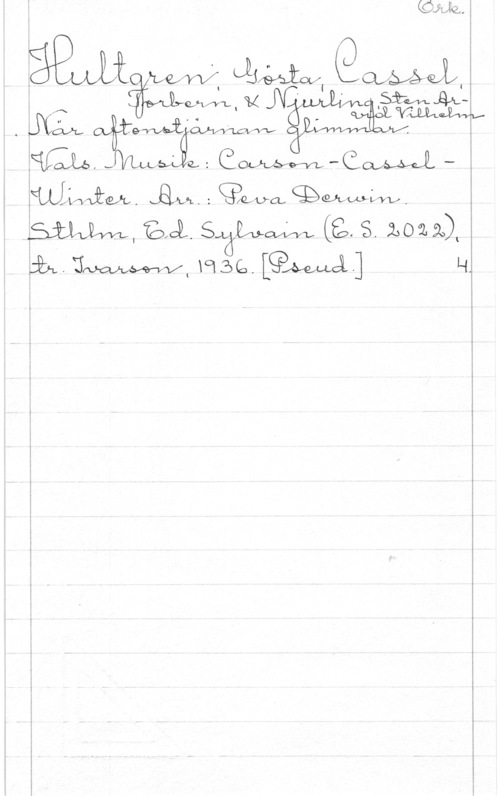 Ork.
Hultgren, Gösta, Cassel,
Torbern, & Njurling, Sten Ar-
vid Vilhelm
När aftonstjärnan glimmar.
Vals. Musik: Carson-Cassel-
Winter. Arr.: Peva Derwin.
Sthlm, Ed. Sylvain (E. S. 2022),
tr. Ivarson, 1936. [Pseud.] 4